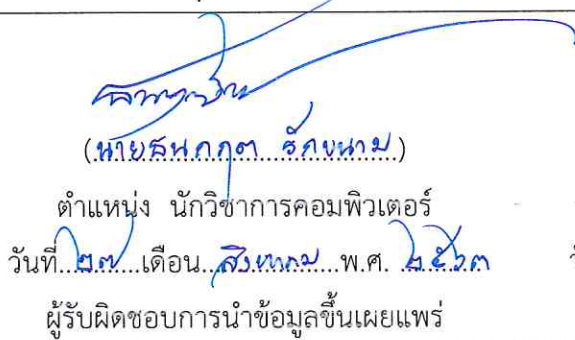 (นายธนกฤต รักขนาม)
ตำแหน่ง นักวิชาการคอมพิวเตอร์
วันที่ ๒๗ เดือน สิงหาคม พ.ศ. ๒๕๖๓
ผู้รับผิดชอบการนำข้อมูลขึ้นเผยแพร่